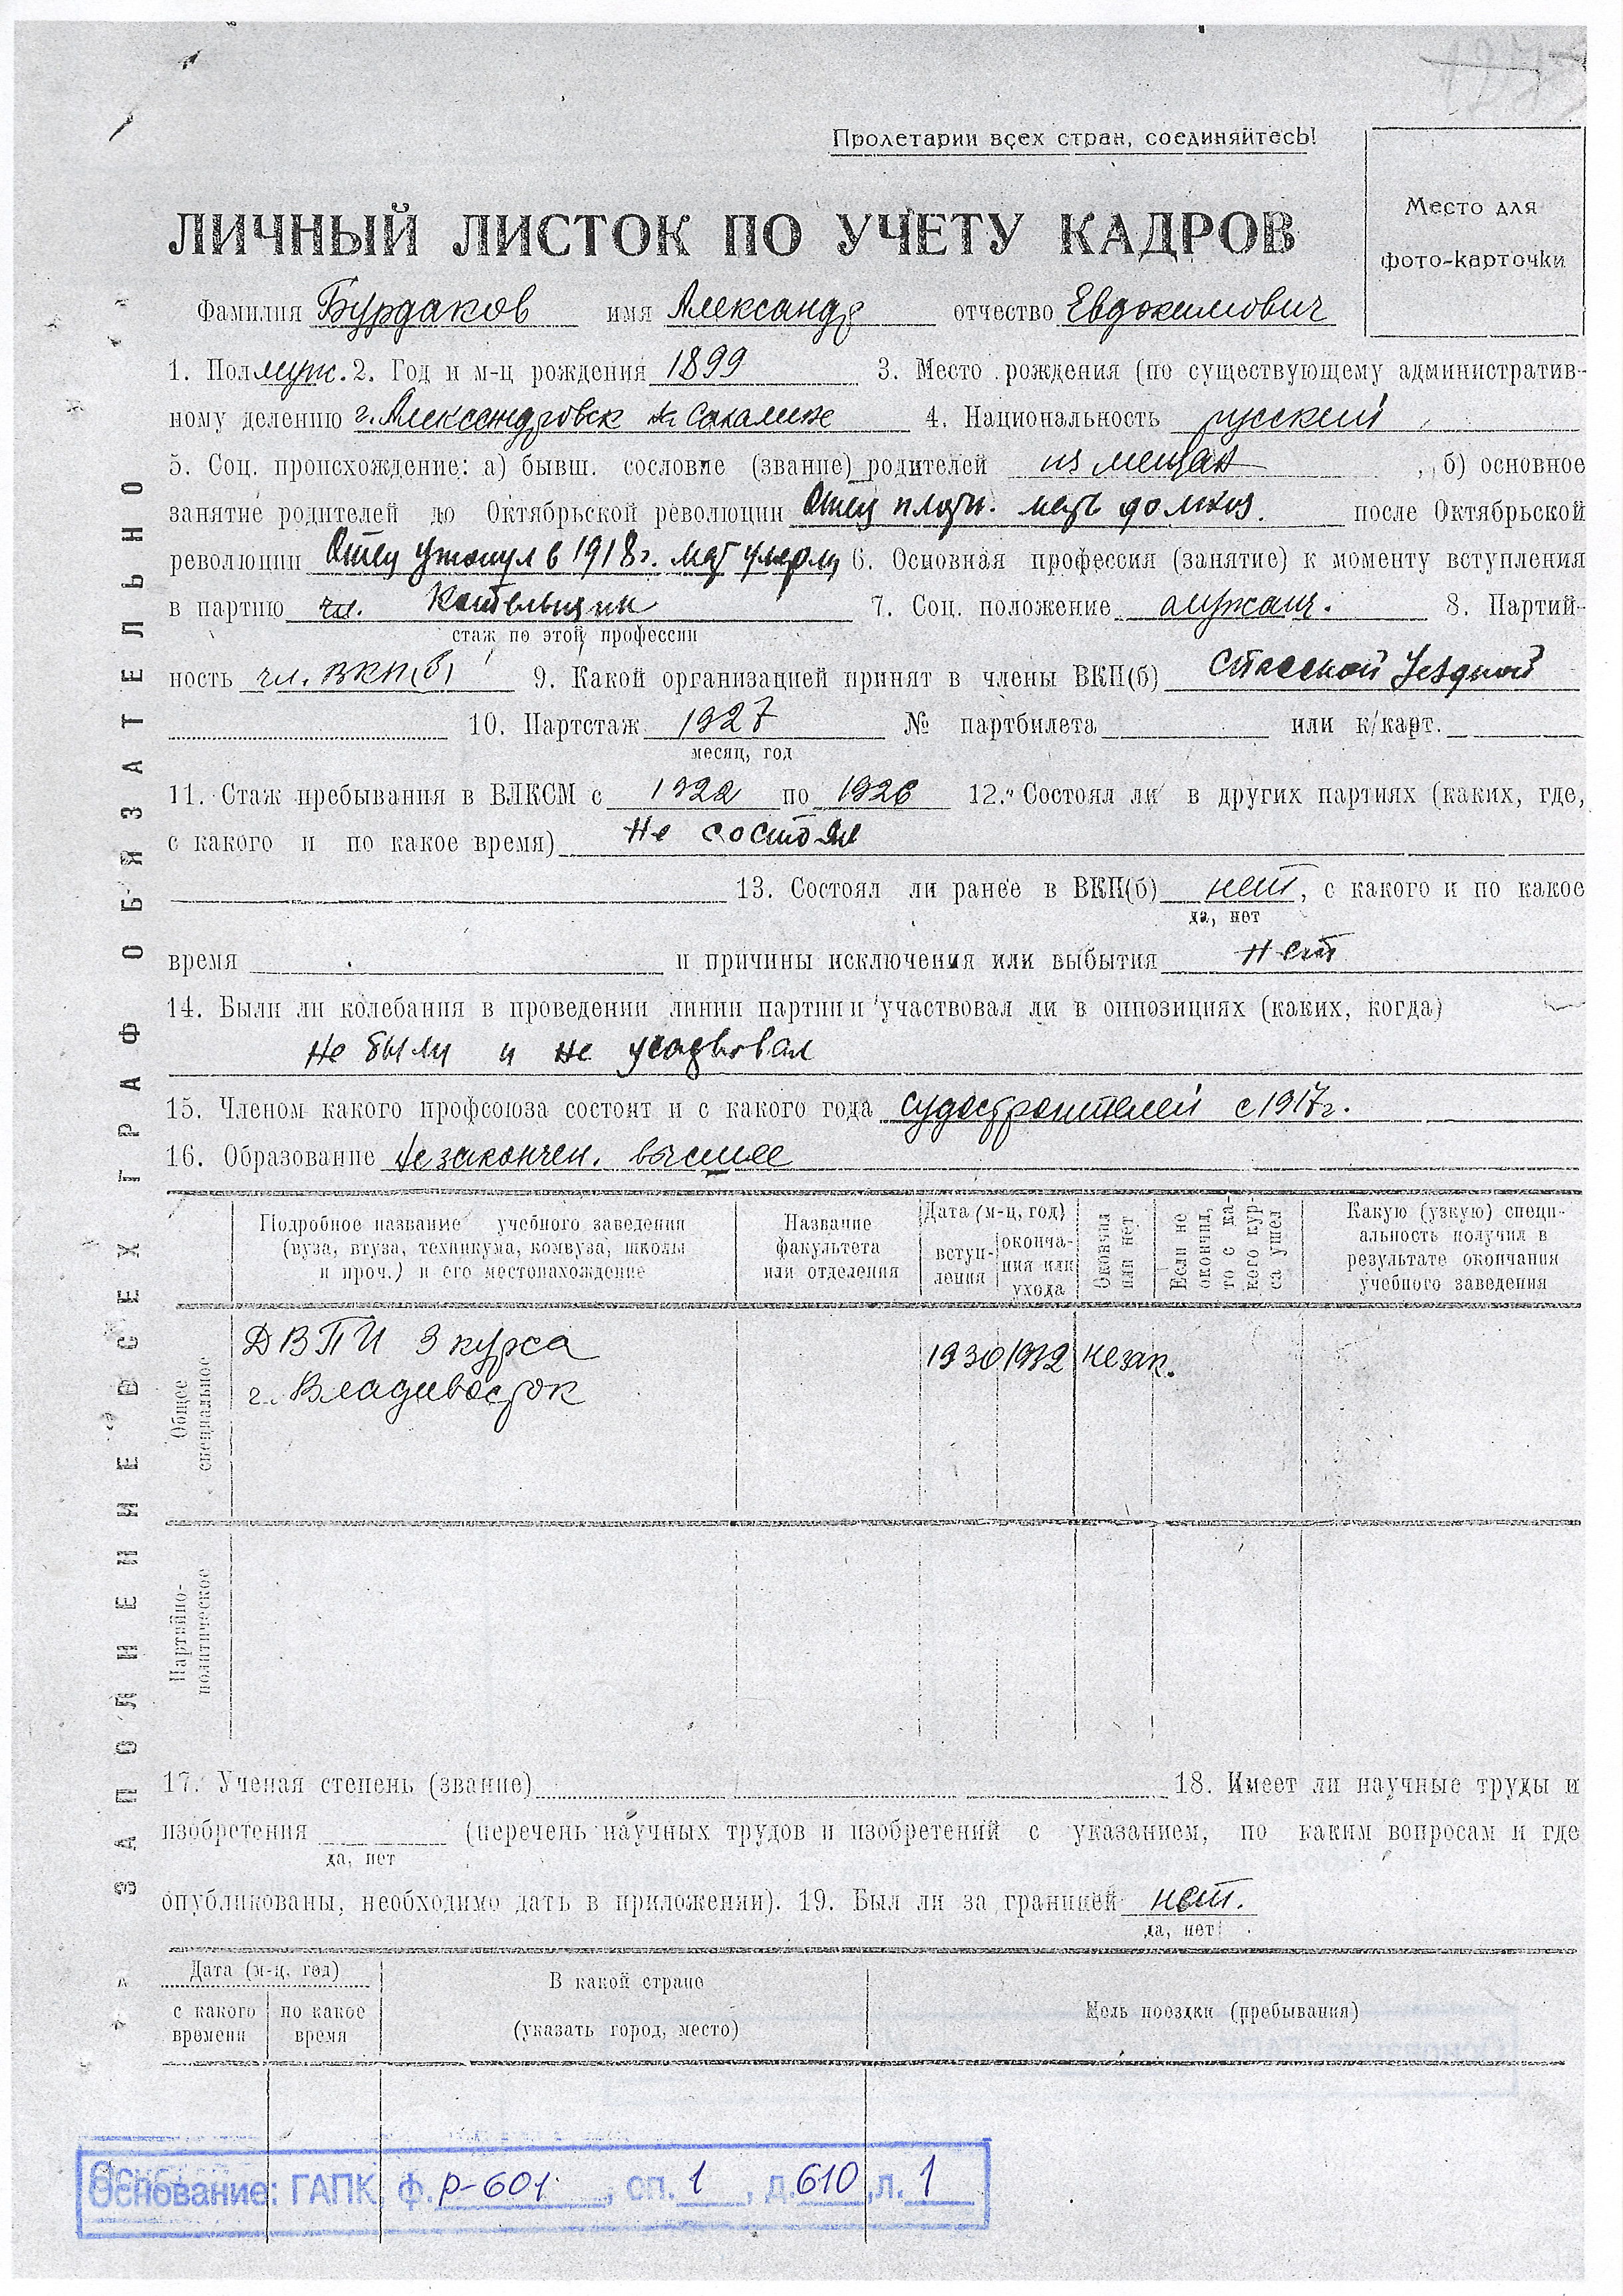 Пролетарии всех стран, соединяйтесь!
Место для
фото-карточки
ЛИЧНЫЙ ЛИСТОК ПО УЧЕТУ КАДРОВ
Фамилия Бурдаков имя Александр отчество Евдокимович
1. Пол муж. 2. Год и м-ц рождения 1899 3. Место рождения (по существующему административ-
ному делению г. Александровск на Сахалине 4. Национальность русский
5. Соц. происхождение: а) бывш. сословие (звание) родителей из мещан, б) основное
занятие родителей до Октябрьской революции Отец плотн. мать домхоз. после Октябрьской
революции Отец утонул в 1918 г. мать умерла 6. Основная профессия (занятие) к моменту вступления
в партию котельщик 7. Соц. положение служащ. 8. Партий-
стаж по этой профессии
ность чл. ВКП(б) 9. Какой организацией принят в члены ВКП(б) Спасской Уездной
10. Партстаж 1927 № партбилета или к/карт.
месяц, год
11. Стаж пребывания в ВЛКСМ с 1922 по 1926 12. Состоял ли в других партиях (каких, где,
с какого и по какое время) Не состоял
13. Состоял ли ранее в ВКП(б) нет, с какого и по какое
да, нет
время и причины исключения или выбытия нет
14. Были ли колебания в проведении линии партии и участвовал ли в оппозициях (каких, когда)
Не были и не участвовал
15. Членом какого профсоюза состоит и с какого года судостроителей с 1917 г.
16. Образование незакончен. высшее
Подробное название учебного заведения
(вуза, втуза, техникума, комвуза, школы
и проч.) и его местонахождение
Название
факультета
или отделения
Дата (м-ц, год)
вступ-
ления
оконча-
ния или
ухода
Окончил
или нет
Если не
окончил,
то с ка-
кого кур-
са ушел
Какую (узкую) специ-
альность получил в
результате окончания
учебного заведения
Общее
специальное
ДВПИ 3 курса 1930 1932 незак.
г. Владивосток
Партийно-
политическое
17. Ученая степень (звание) 18. Имеет ли научные труды и
изобретения (перечень научных трудов и изобретений с указанием, по каким вопросам и где
да, нет
опубликованы, необходимо дать в приложении). 19. Был ли за границей нет.
да, нет
Дата (м-ц, год)
с какого
времени
по какое
время
В какой стране
(указать город, место)
Цель поездки (пребывания)
ЗАПОЛНЕНИЕ ВСЕХ ГРАФ ОБЯЗАТЕЛЬНО
Основание: ГАПК, ф. р-601, оп. 1, д. 610, л. 1